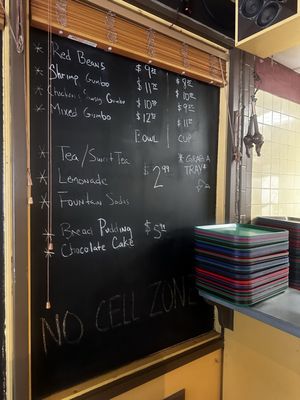 * Red Beans $9⁹⁹ $9⁹⁹
* Shrimp Gumbo $11⁹⁹ $10⁹⁹
* Chicken & Sausage Gumbo $10⁹⁹ $9⁹⁹
* Mixed Gumbo $12⁹⁹ $11⁹⁹
BOWL CUP
* Tea / Sweet Tea
* Lemonade $2⁹⁹
* Fountain Sodas
* GRAB A TRAY *
* Bread Pudding $5⁹⁹
* Chocolate Cake
NO CELL ZONE